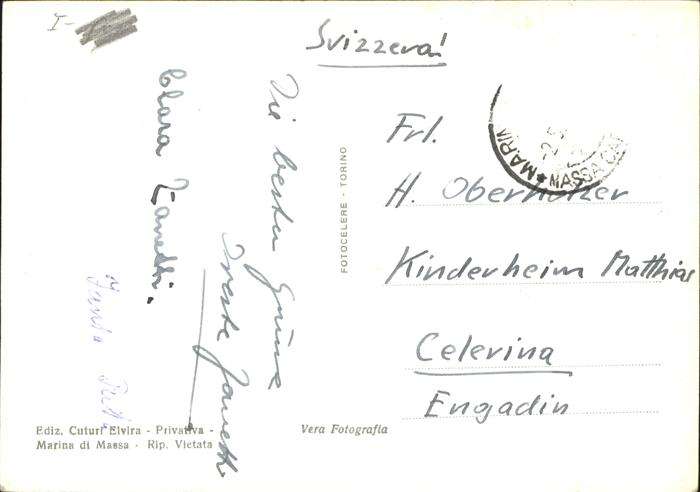 I-
Svizzera!
Die besten Grüsse
Oreste Zanetti
Clara Zanetti.
Frl.
H. Oberholzer
Kinderheim Matthias
Celerina
Engadin
MARINA
MASSA-CAR
FOTOCELERE - TORINO
Ediz. Cuturi Elvira - Privativa -
Marina di Massa - Rip. Vietata
Vera Fotografia